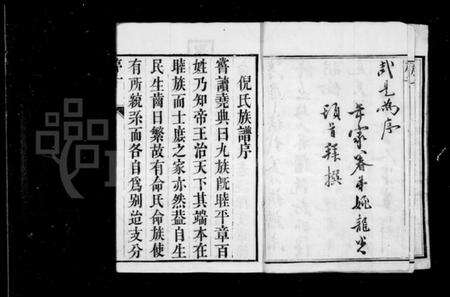 武是為序
年家眷弟姚龍光
頓首拜撰
倪氏族譜序
嘗讀堯典曰九族既睦平章百
姓乃知帝王治天下其端本在
睦族而士庶之家亦然葢自生
民生齒日繁故有命氏命族使
有所統系而各自為別迨支分